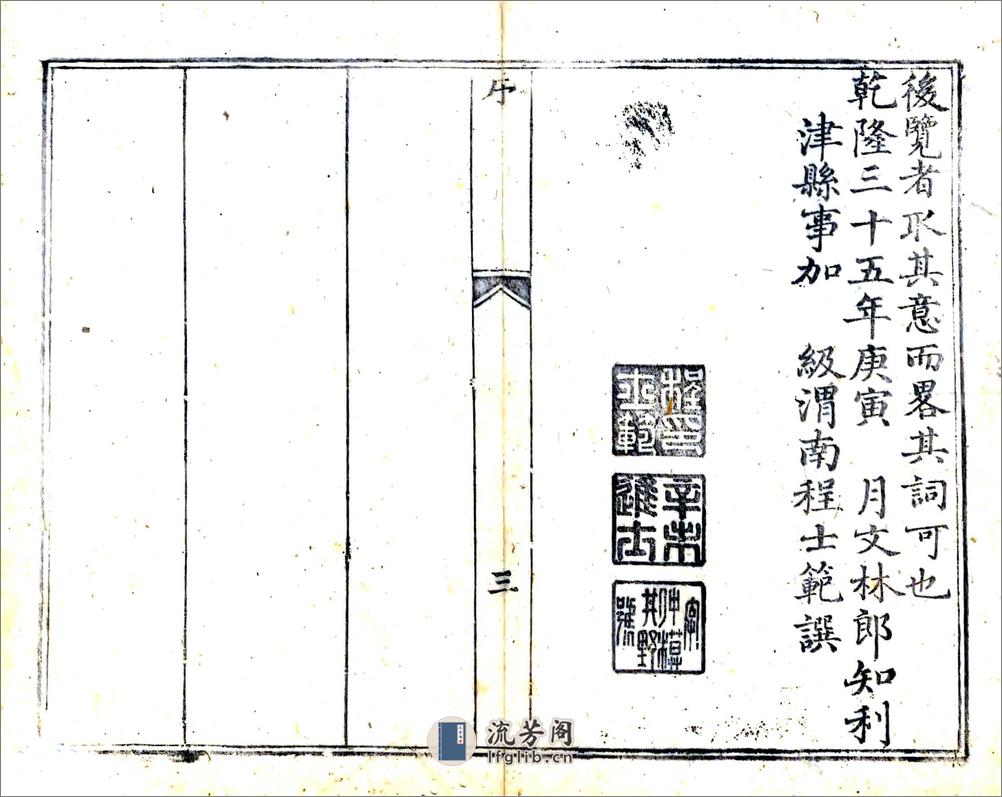 後覽者取其意而畧其詞可也
乾隆三十五年庚寅　月文林郎知利
津縣事加　級渭南程士範譔
程印士範
辛未進士
字仲模其野號
序
三
流芳阁
lfglib.cn